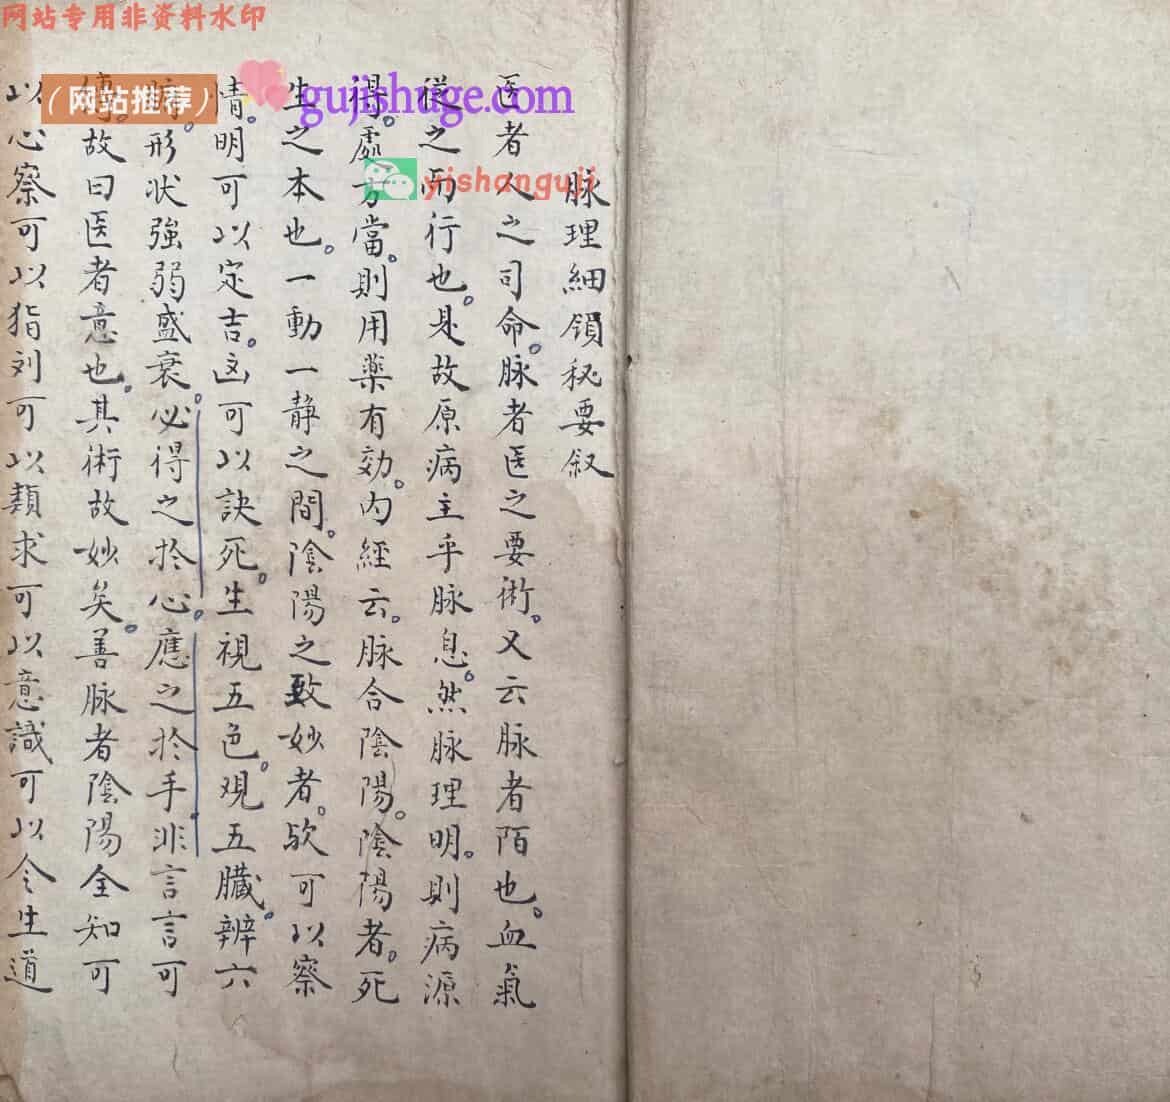 网站专用非资料水印
（网站推荐）
gujishuge.com
yishanguji
脉理細領秘要叙
医者人之司命。脉者医之要術。又云脉者陌也。血氣
從之而行也。是故原病主乎脉息。然脉理明。則病源
得。處方當。則用藥有効。内經云。脉合陰陽。陰陽者。死
生之本也。一動一静之間。陰陽之致妙者。欤可以察
情。明可以定吉。凶可以訣死。生視五色。观五臓。辨六
形状強弱盛衰。必得之於心。應之於手。非言言可
故曰医者意也。其術故妙矣。善脉者陰陽全知可
以心察可以指别可以類求可以意識可以令生道